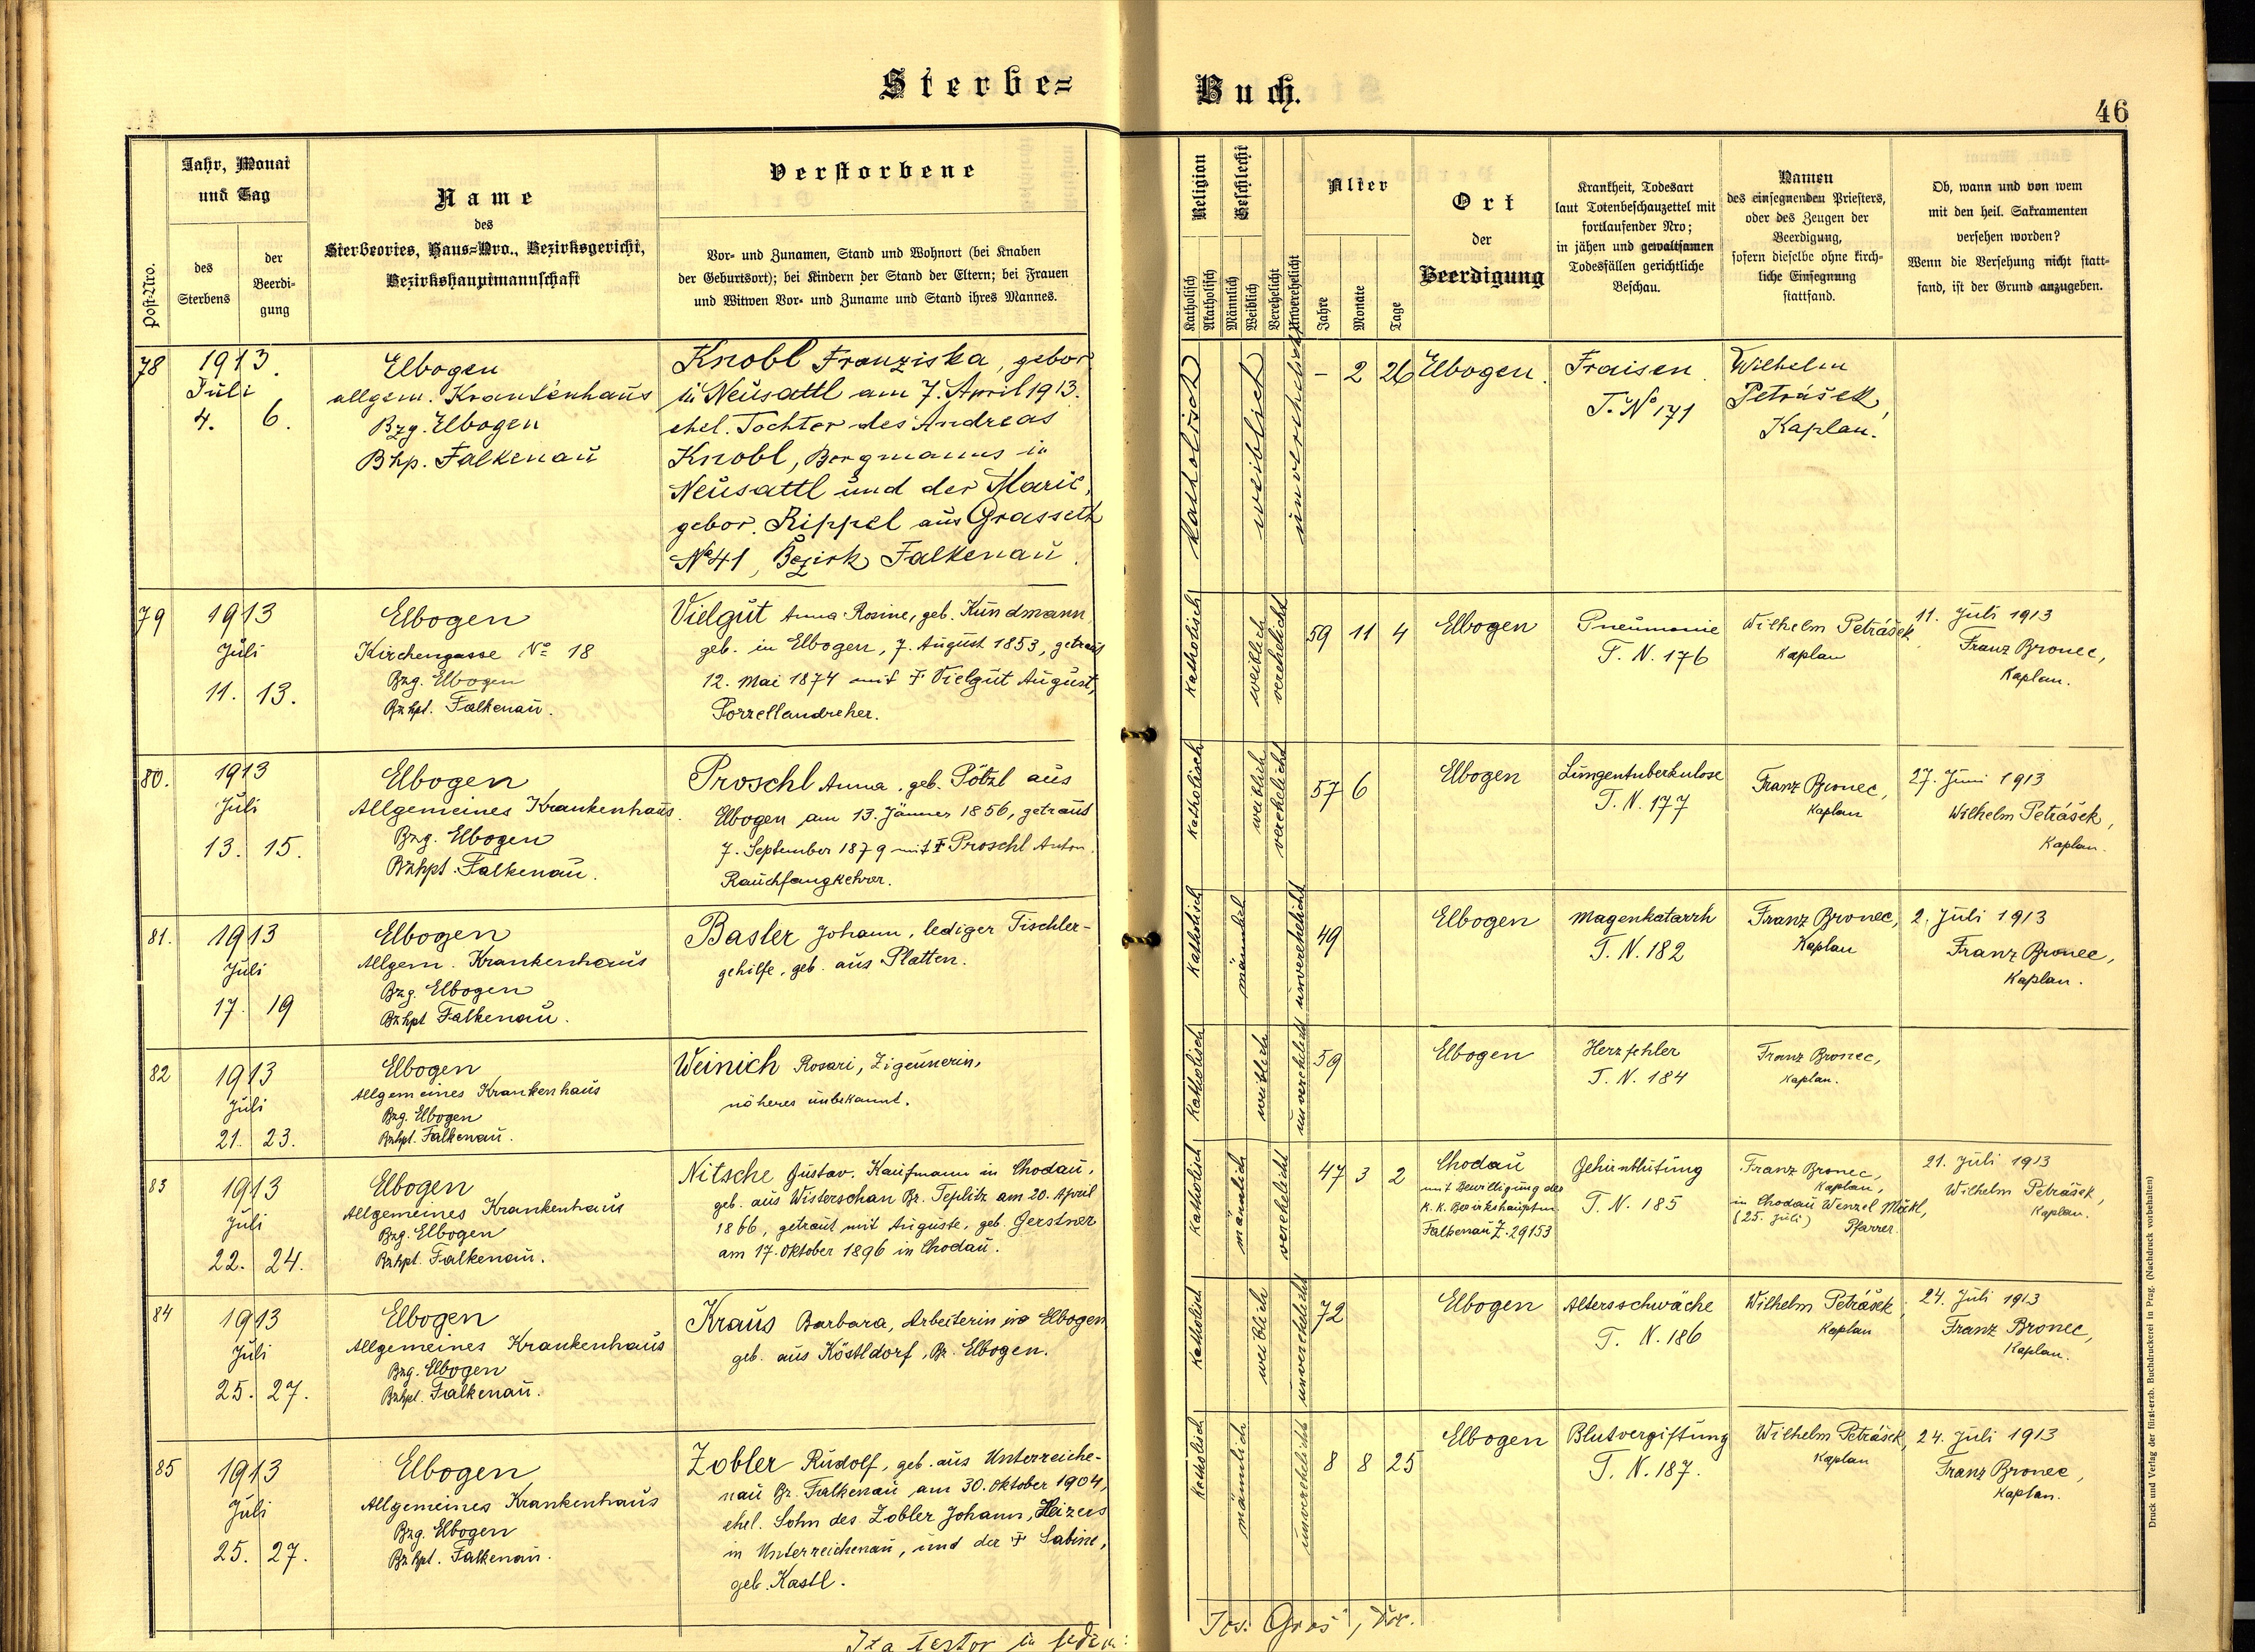 Sterbe-
Buch.
46
Post-Nro.
Jahr, Monat
und Tag
des
Sterbens
der
Beerdi-
gung
Name
des
Sterbeortes, Haus-Nro., Bezirksgericht,
Bezirkshauptmannschaft
Verstorbene
Vor- und Zunamen, Stand und Wohnort (bei Knaben
der Geburtsort); bei Kindern der Stand der Eltern; bei Frauen
und Witwen Vor- und Zuname und Stand ihres Mannes.
Religion
Katholisch
Akatholisch
Geschlecht
Männlich
Weiblich
Verehelicht
Unverehelicht
Alter
Jahre
Monate
Tage
Ort
der
Beerdigung
Krankheit, Todesart
laut Totenbeschauzettel mit
fortlaufender Nro;
in jähen und gewaltsamen
Todesfällen gerichtliche
Beschau.
Namen
des einsegnenden Priesters,
oder des Zeugen der
Beerdigung,
sofern dieselbe ohne kirch-
liche Einsegnung
stattfand.
Ob, wann und von wem
mit den heil. Sakramenten
versehen worden?
Wenn die Versehung nicht statt-
fand, ist der Grund anzugeben.
78
1913.
Juli
4. 6.
Elbogen
allgem. Krankenhaus
Bzg. Elbogen
Bhp. Falkenau
Knobl Franziska, gebor
in Neusattl am 7. April 1913.
ehel. Tochter des Andreas
Knobl, Bergmanns in
Neusattl und der Marie,
gebor. Rippel aus Grasseth
No 41, Bezirk Falkenau.
katholisch
weiblich
unverehelicht
– 2 26
Elbogen.
Fraisen.
T. No 171
Wilhelm
Petrášek,
Kaplan.
79
1913
Juli
11. 13.
Elbogen
Kirchengasse No 18
Bzg. Elbogen
Bzhpt. Falkenau.
Vielgut Anna Rosine, geb. Kundmann
geb. in Elbogen, 7. August 1853, getraut
12. Mai 1874 mit † Vielgut August,
Porzellandreher.
katholisch
weiblich
verehelicht
59 11 4
Elbogen
Pneumonie
T. N. 176
Wilhelm Petrášek,
Kaplan
11. Juli 1913
Franz Bronec,
Kaplan.
80.
1913
Juli
13. 15.
Elbogen
Allgemeines Krankenhaus.
Bzg. Elbogen
Bzhpt. Falkenau.
Proschl Anna, geb. Pötzl aus
Elbogen am 13. Jänner 1856, getraut
7. September 1879 mit † Proschl Anton.
Rauchfangkehrer.
katholisch
weiblich
verehelicht
57 6
Elbogen
Lungentuberkulose
T. N. 177
Franz Bronec,
Kaplan
27. Juni 1913
Wilhelm Petrášek,
Kaplan.
81.
1913
Juli
17. 19
Elbogen
Allgem. Krankenhaus
Bzg. Elbogen
Bzhpt Falkenau.
Basler Johann, lediger Tischler-
gehilfe, geb. aus Platten.
katholisch
männlich
unverehelicht
49
Elbogen
Magenkatarrh
T. N. 182
Franz Bronec,
Kaplan
2. Juli 1913
Franz Bronec,
Kaplan.
82
1913
Juli
21. 23.
Elbogen
Allgemeines Krankenhaus
Bzg. Elbogen
Bzhpt. Falkenau.
Weinich Rosari, Zigeunerin,
näheres unbekannt.
katholisch
weiblich
unverehelicht
59
Elbogen
Herzfehler
T. N. 184
Franz Bronec,
Kaplan.
83
1913
Juli
22. 24.
Elbogen
Allgemeines Krankenhaus
Bzg. Elbogen
Bzhpt. Falkenau.
Nitsche Gustav. Kaufmann in Chodau,
geb. aus Wisterschan Bz. Teplitz am 20. April
1866, getraut mit Auguste, geb. Gerstner
am 17. Oktober 1896 in Chodau.
katholisch
männlich
verehelicht
47 3 2
Chodau
mit Bewilligung der
K. K. Bezirkshauptm.
Falkenau Z. 29153
Gehirnblutung
T. N. 185
Franz Bronec,
Kaplan,
in Chodau Wenzel Möckl,
(25. Juli) Pfarrer.
21. Juli 1913
Wilhelm Petrášek,
Kaplan.
84
1913
Juli
25. 27.
Elbogen
Allgemeines Krankenhaus
Bzg. Elbogen
Bzhpt. Falkenau.
Kraus Barbara, Arbeiterin in Elbogen
geb. aus Köstldorf, Bz. Elbogen.
katholisch
weiblich
unverehelicht
72
Elbogen
Altersschwäche
T. N. 186
Wilhelm Petrášek,
Kaplan
24. Juli 1913
Franz Bronec,
Kaplan.
85
1913
Juli
25. 27.
Elbogen
Allgemeines Krankenhaus
Bzg. Elbogen
Bzhpt. Falkenau.
Zobler Rudolf, geb. aus Unterreiche-
nau Bz. Falkenau am 30. Oktober 1904,
ehel. Sohn des Zobler Johann, Heizers
in Unterreichenau, und der † Sabine,
geb. Kastl.
katholisch
männlich
unverehelicht
8 8 25
Elbogen
Blutvergiftung
T. N. 187.
Wilhelm Petrášek,
Kaplan
24. Juli 1913
Franz Bronec,
Kaplan.
Ita testor in fidem:
Jos. Gros
Druck und Verlag der fürst-erzb. Buchdruckerei in Prag. (Nachdruck vorbehalten)